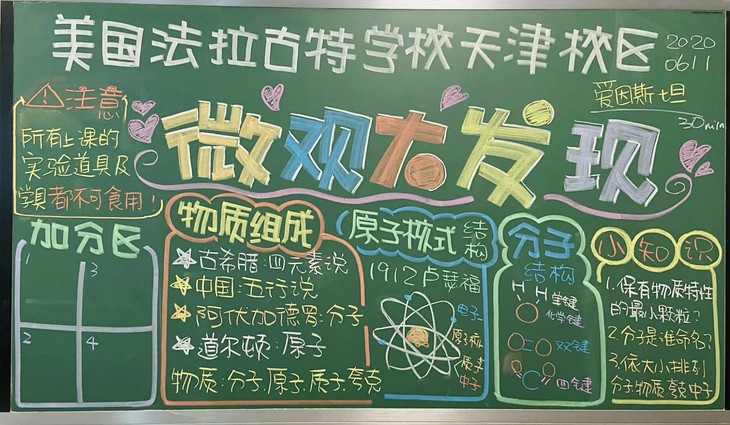 美国法拉古特学校天津校区
2020
0611
爱因斯坦
30min
⚠注意
所有上课的
实验道具及
学具都不可食用!
微观大发现
加分区
1
3
2
4
物质组成
古希腊:四元素说
中国:五行说
阿伏加德罗:分子
道尔顿:原子
物质:分子.原子.质子.夸克
原子核式结构
1912卢瑟福
电子
原子核
质子
中子
分子
结构
H H 单键
化学键
双键
四键
小知识
1.保有物质特性
的最小颗粒?
2.分子是谁命名?
3.依大小排列
分子物质夸克中子